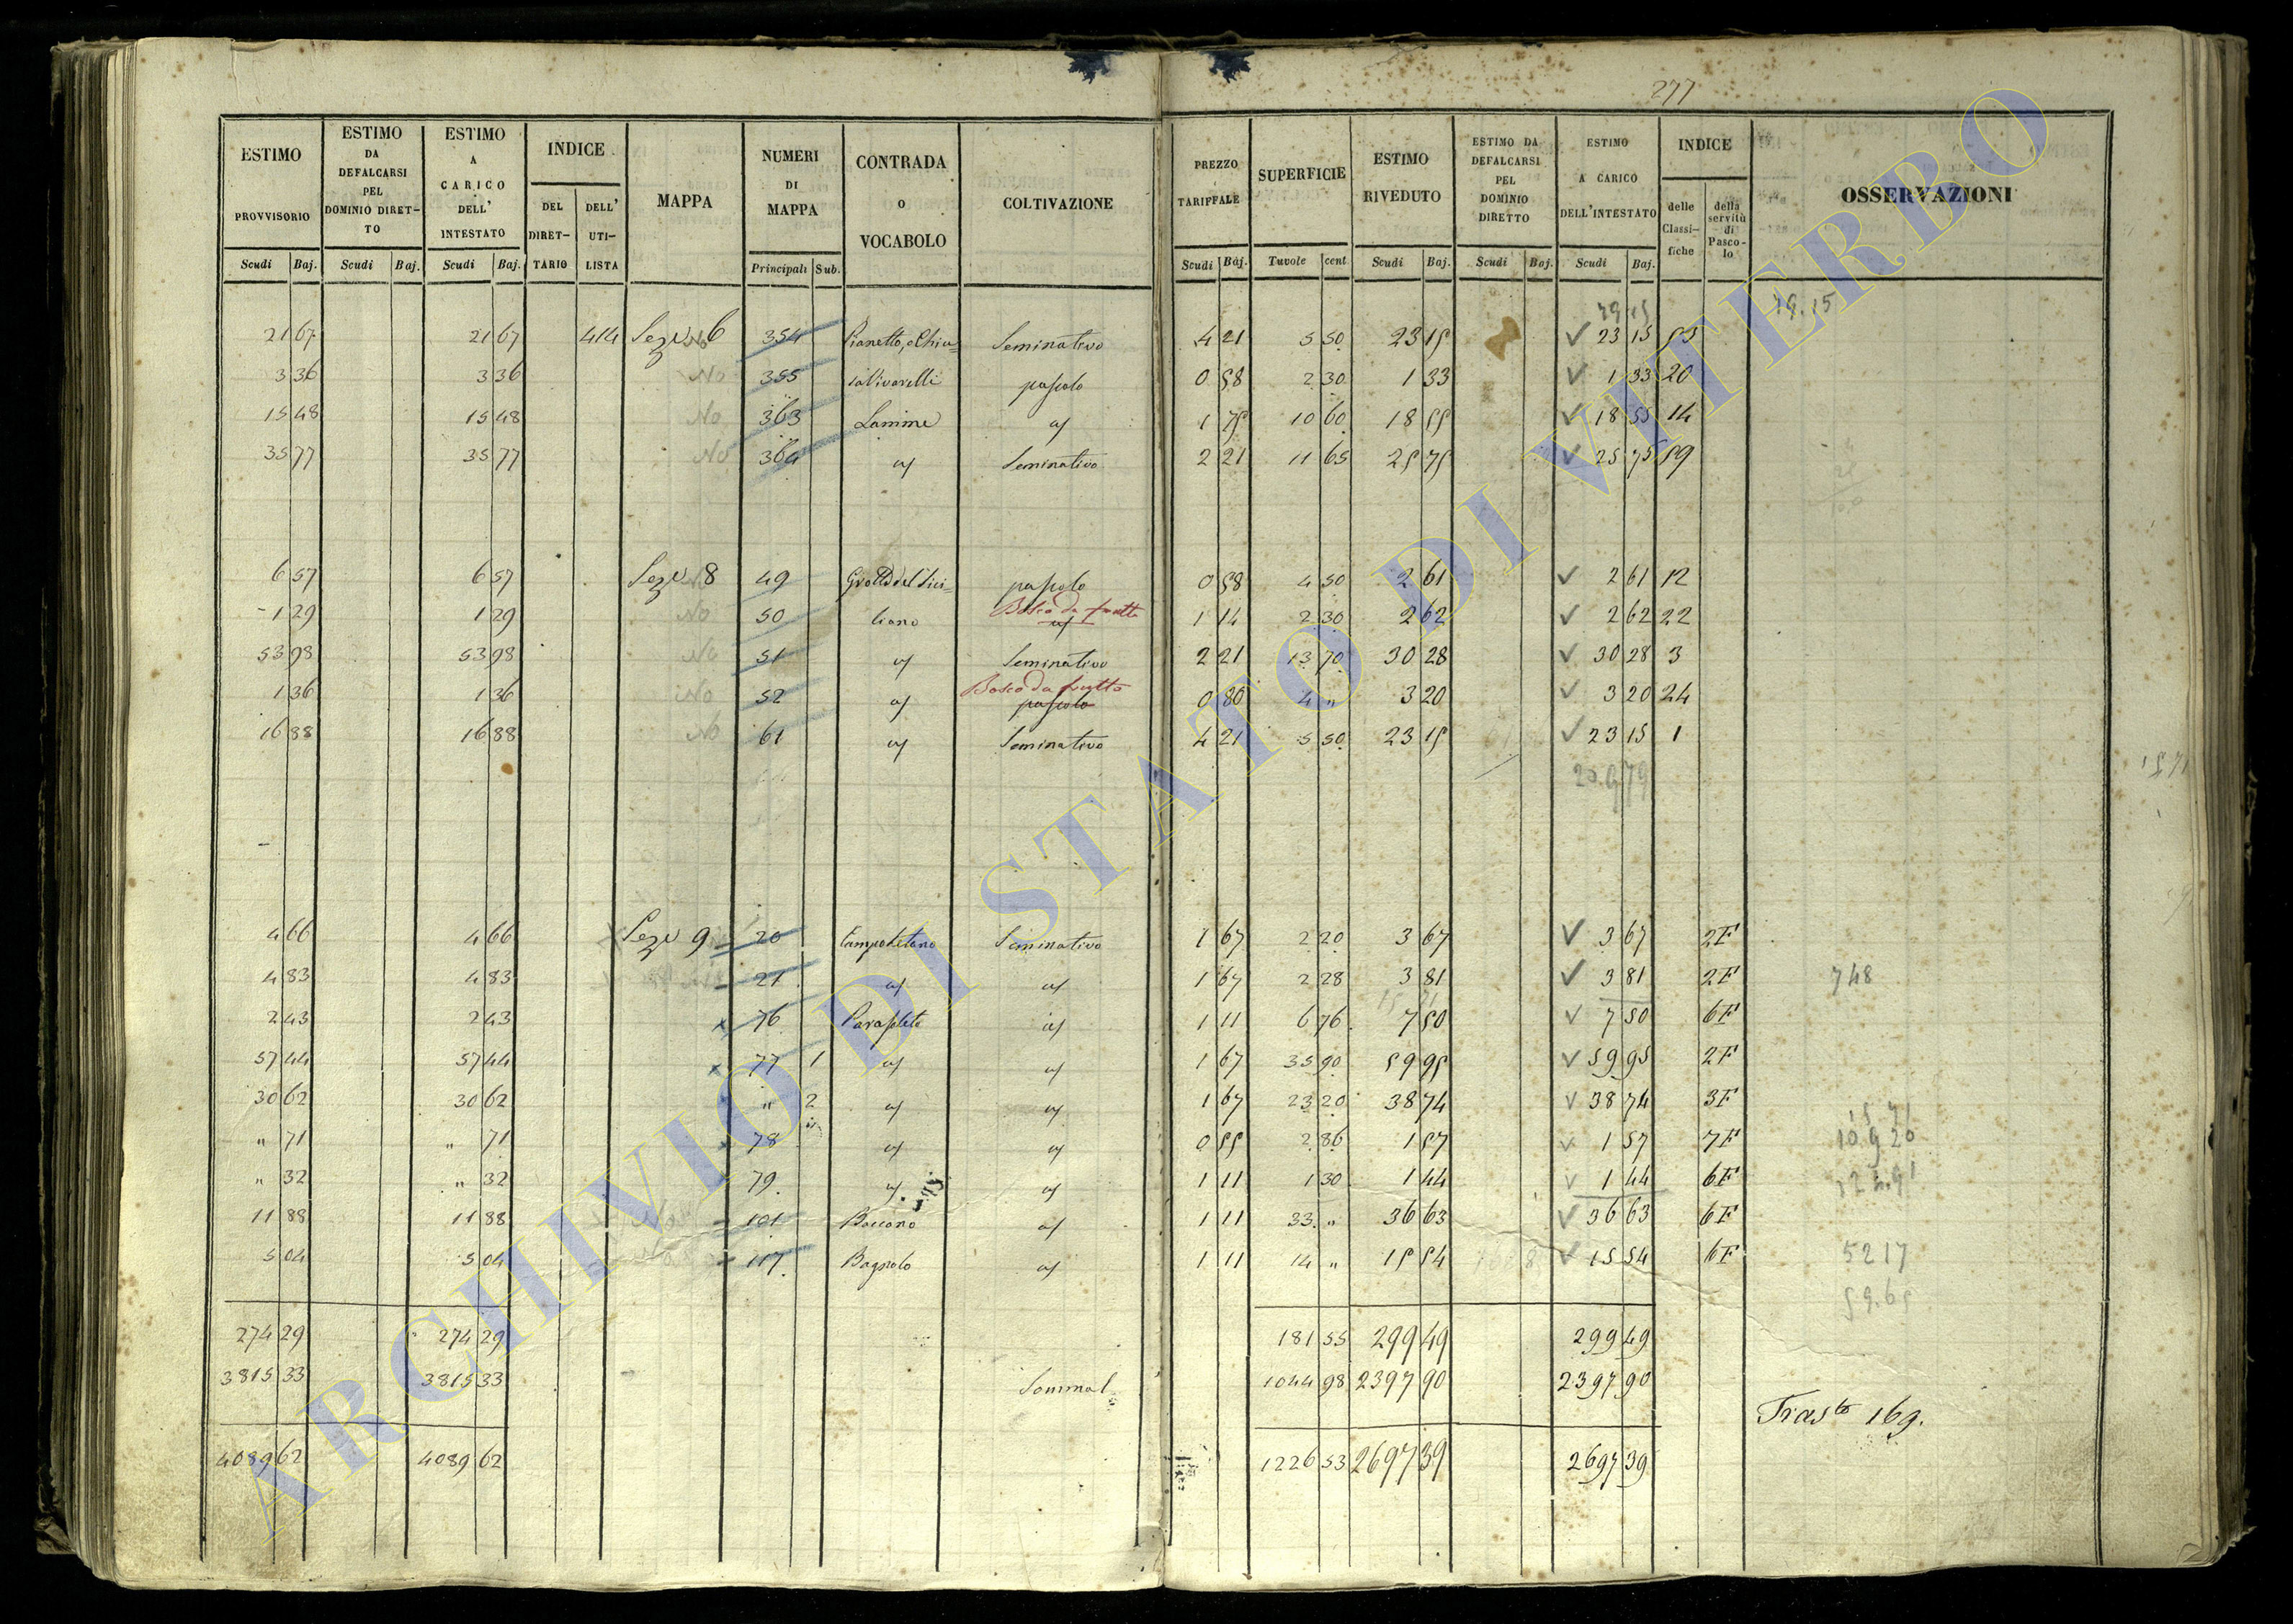 277
ESTIMO PROVVISORIO Scudi Baj.
ESTIMO DA DEFALCARSI PEL DOMINIO DIRET-TO Scudi Baj.
ESTIMO A CARICO DELL' INTESTATO Scudi Baj.
INDICE DEL DIRET-TARIO DELL' UTI-LISTA
MAPPA
NUMERI DI MAPPA Principali Sub.
CONTRADA O VOCABOLO
COLTIVAZIONE
PREZZO TARIFFALE Scudi Baj.
SUPERFICIE Tavole cent
ESTIMO RIVEDUTO Scudi Baj.
ESTIMO DA DEFALCARSI PEL DOMINIO DIRETTO Scudi Baj.
ESTIMO A CARICO DELL'INTESTATO Scudi Baj.
INDICE delle Classi-fiche della servitù di Pasco-lo
OSSERVAZIONI
29.15
21 67 21 67 414 Sez.e 6 354 Pianetto, o Chiu= Seminativo 4 21 5 50 23 15 23 15 53
3 36 3 36 No 355 pascolo 0 58 2 30 1 33 1 33 20
15 48 15 48 No 363 Lamine " 1 75 10 60 18 55 18 55 14
35 77 35 77 No 364 " Seminativo 2 21 11 65 25 75 25 75 59
6 57 6 57 Sez.e 8 49 pascolo 0 58 4 50 2 61 2 61 12
Bosco da frutto
1 29 1 29 No 50 1 14 2 30 2 62 2 62 22
53 98 53 98 No 51 " Seminativo 2 21 13 70 30 28 30 28 3
Bosco da frutto
1 36 1 36 No 52 " pascolo 0 80 4 " 3 20 3 20 24
16 88 16 88 No 61 " Seminativo 4 21 5 50 23 15 23 15 1
4 66 4 66 Sez.e 9 20 Seminativo 1 67 2 20 3 67 3 67 2F
4 83 4 83 21 " " 1 67 2 28 3 81 3 81 2F 748
2 43 2 43 76 " 1 11 6 76 7 50 7 50 6F
57 44 57 44 77 1 " " 1 67 35 90 59 95 59 95 2F
30 62 30 62 " 2 " " 1 67 23 20 38 74 38 74 3F
" 71 " 71 78 " " 0 55 2 86 1 57 1 57 7F
" 32 " 32 79 " " 1 11 1 30 1 44 1 44 6F
11 88 11 88 No 101 Baccano " 1 11 33 " 36 63 36 63 6F
5 04 5 04 117 Bagnolo " 1 11 14 " 15 54 15 54 6F 5217
274 29 274 29 181 55 299 49 299 49
3815 33 3815 33 Sommal 1044 98 2397 90 2397 90
Trasto 169.
4089 62 4089 62 1226 53 2697 39 2697 39
ARCHIVIO DI STATO DI VITERBO